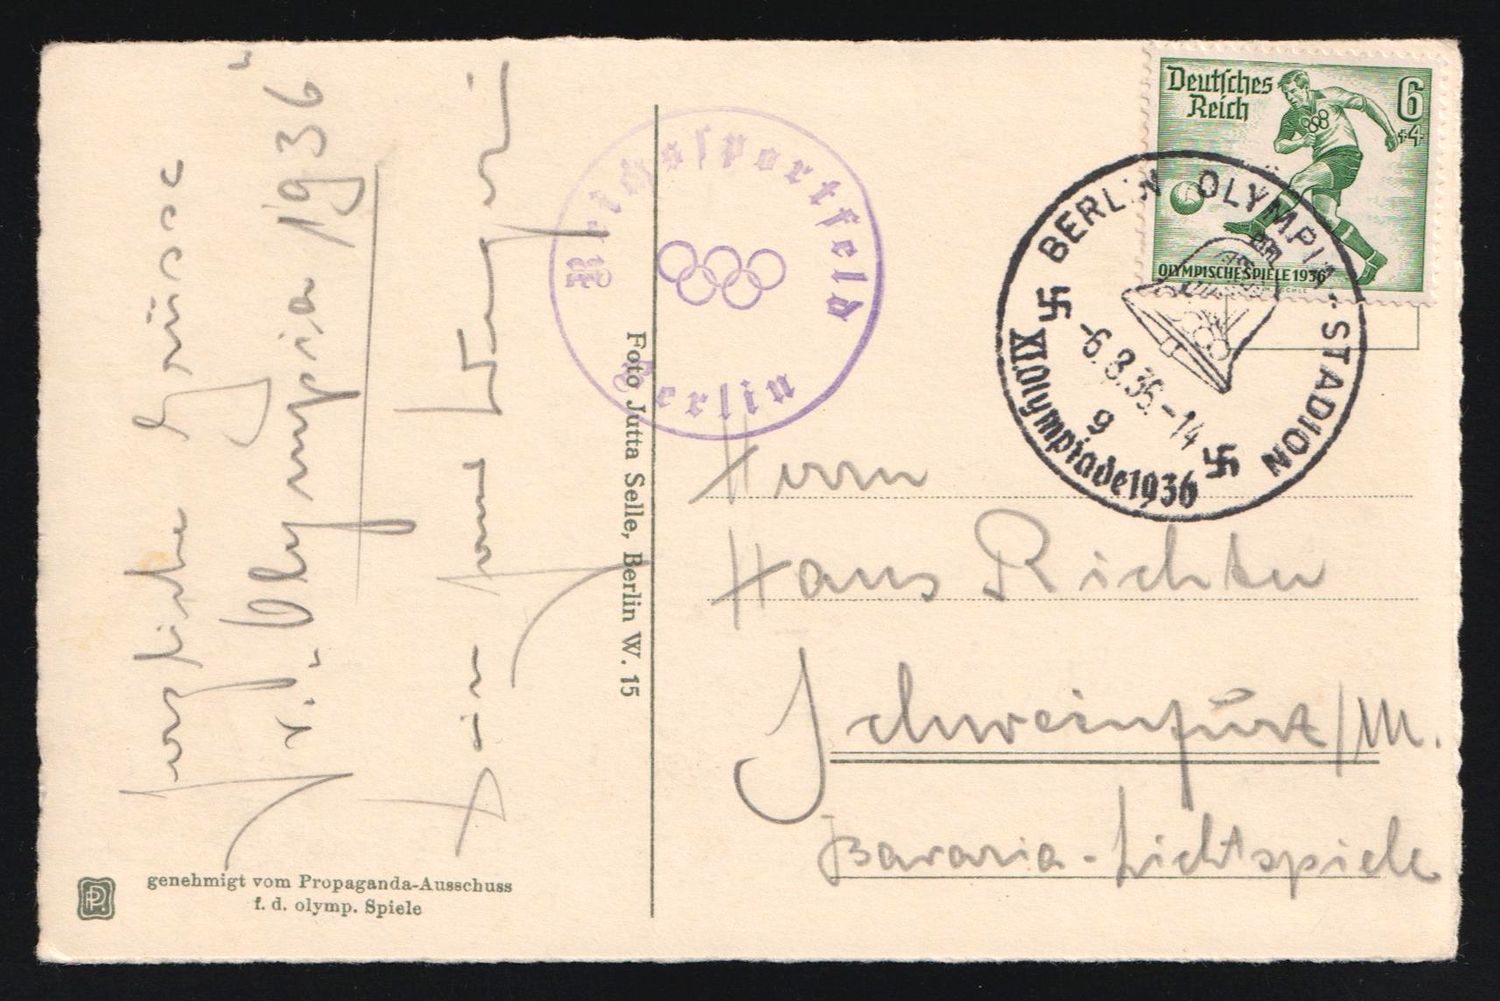 Herzliche Grüsse
v. d. „Olympia 1936"
Dein
Reichssportfeld
Berlin
Foto Jutta Selle, Berlin W. 15
genehmigt vom Propaganda-Ausschuss
f. d. olymp. Spiele
Deutsches
Reich
6
+4
OLYMPISCHE SPIELE 1936
BERLIN OLYMPIA-STADION
-6.8.36.-14
g
XI.Olympiade1936
Herrn
Hans Richter
Schweinfurt/M.
Bavaria-Lichtspiele